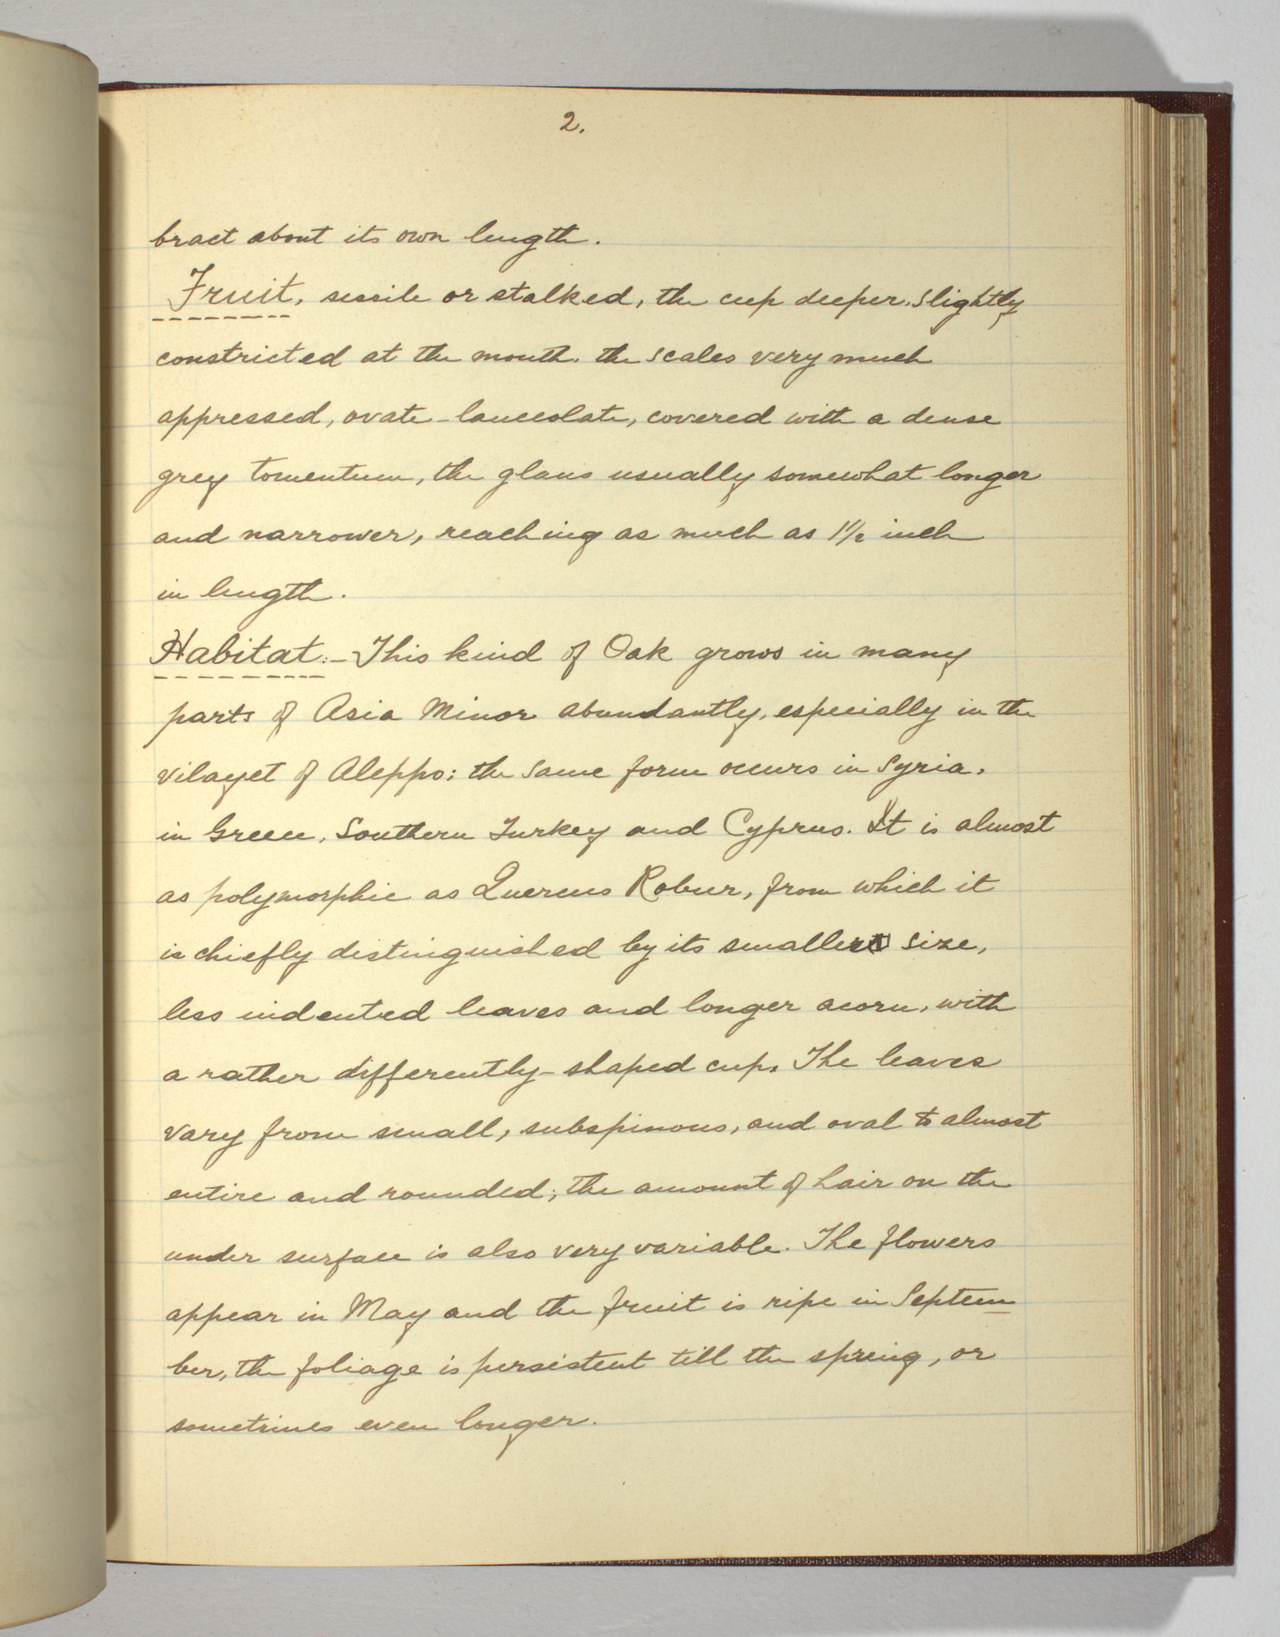 2.
bract about its own length.
Fruit, sessile or stalked, the cup deeper, slightly
constricted at the mouth. the scales very much
appressed, ovate-lanceolate, covered with a dense
grey tomentum, the glans usually somewhat longer
and narrower, reaching as much as 1½ inch
in length.
Habitat:- This kind of Oak grows in many
parts of Asia Minor abundantly, especially in the
vilayet of Aleppo; the same form occurs in Syria,
in Greece, Southern Turkey and Cyprus. It is almost
as polymorphic as Quercus Robur, from which it
is chiefly distinguished by its smaller size,
less indented leaves and longer acorn, with
a rather differently-shaped cup. The leaves
vary from small, subspinous, and oval to almost
entire and rounded; the amount of hair on the
under surface is also very variable. The flowers
appear in May and the fruit is ripe in Septem
ber, the foliage is persistent till the spring, or
sometimes even longer.